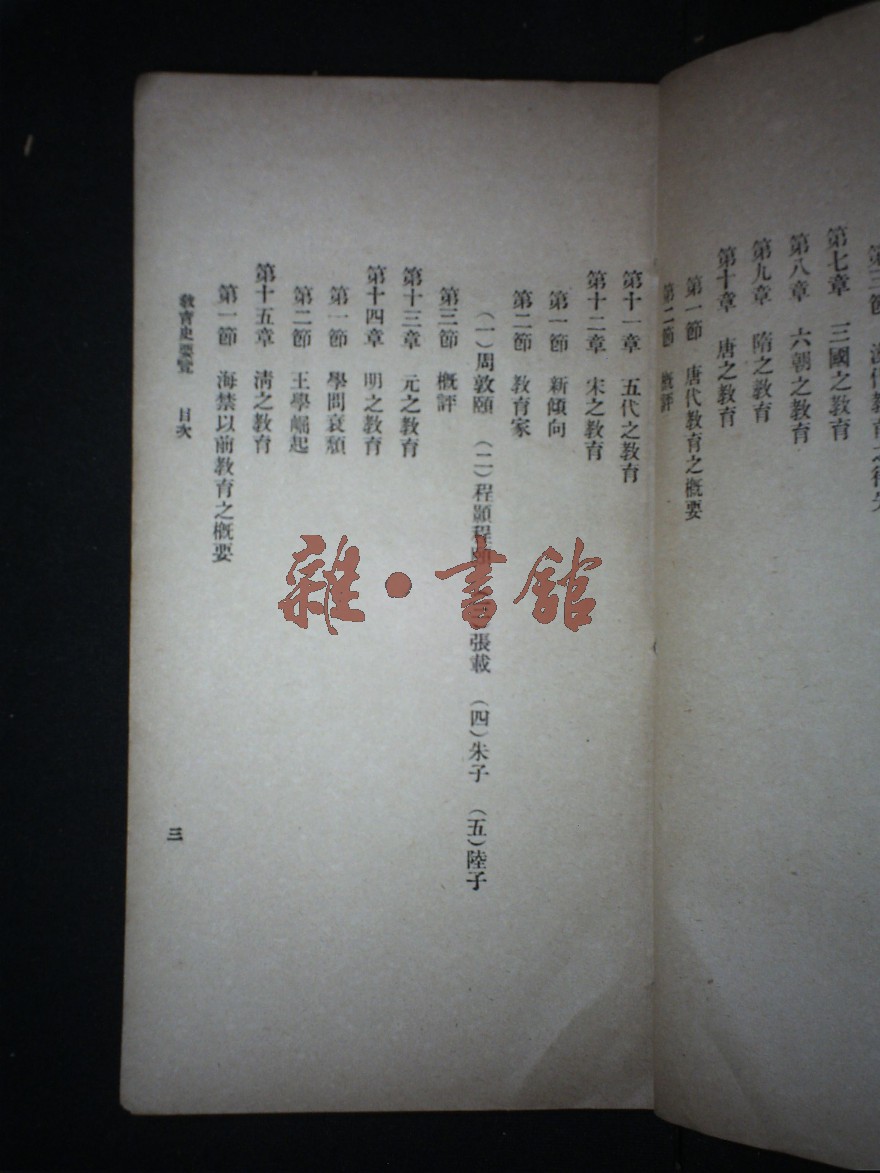 第七章　三國之教育
第八章　六朝之教育
第九章　隋之教育
第十章　唐之教育
第一節　唐代教育之概要
第二節　概評
第十一章　五代之教育
第十二章　宋之教育
第一節　新傾向
第二節　教育家
（一）周敦頤　（二）程顥程頤　張載　（四）朱子　（五）陸子
第三節　概評
第十三章　元之教育
第十四章　明之教育
第一節　學問衰頹
第二節　王學崛起
第十五章　清之教育
第一節　海禁以前教育之概要
教育史要覽　目次
三
雜·書館